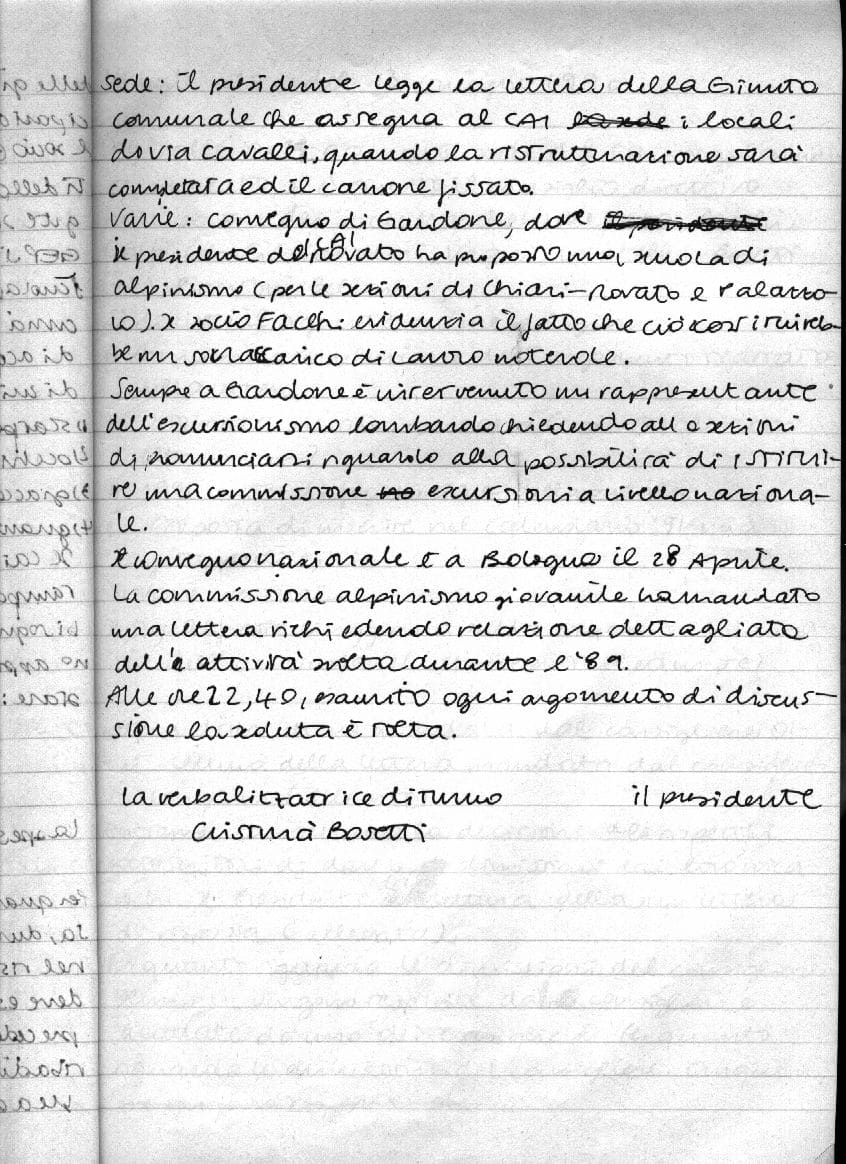 sede: il presidente legge la lettera della Giunta
comunale che assegna al CAI la sede i locali
di via Cavalli, quando la ristrutturazione sarà
completata ed il canone fissato.
Varie: convegno di Gardone, dove il presidente
il presidente del CAI Rovato ha proposto una scuola di
alpinismo (per le sezioni di Chiari-Rovato e Palazzo
lo). Il socio Facchi evidenzia il fatto che ciò costituireb
be un sovraccarico di lavoro notevole.
Sempre a Gardone è intervenuto un rappresentante
dell'escursionismo lombardo chiedendo alle sezioni
di pronunciarsi riguardo alla possibilità di istitui-
re una commissione escursioni a livello naziona-
le.
Il convegno nazionale è a Bologna il 28 Aprile.
La commissione alpinismo giovanile ha mandato
una lettera richiedendo relazione dettagliata
delle attività svolta durante l'89.
Alle ore 22,40, esaurito ogni argomento di discus-
sione la seduta è tolta.
La verbalizzatrice di turno il presidente
Cristina Bosetti